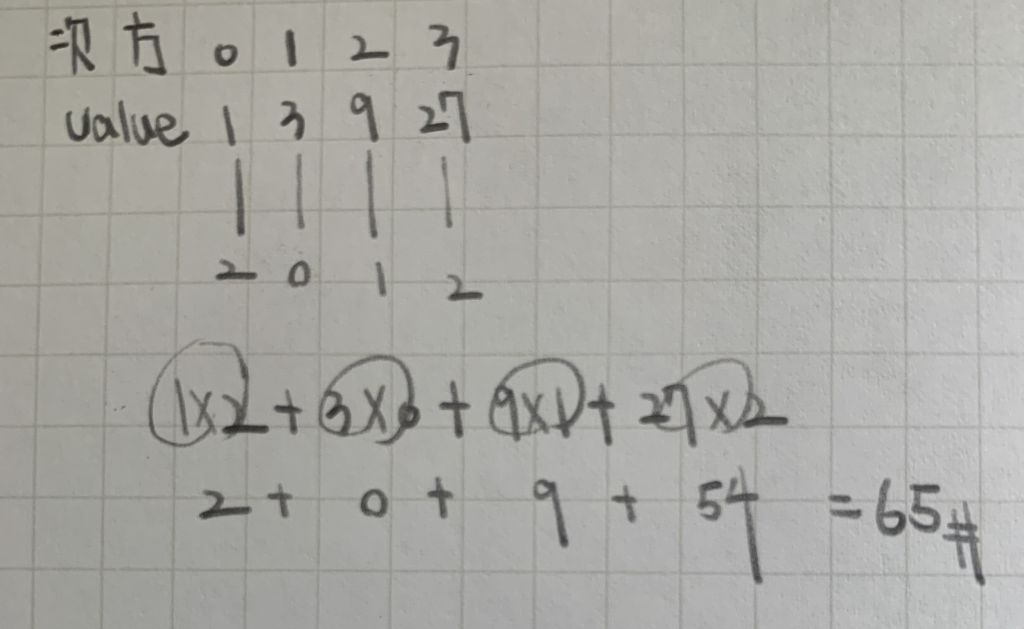 次方 0 1 2 3
value 1 3 9 27
| | | |
2 0 1 2
1×2 + 3×0 + 9×1 + 27×2
2 + 0 + 9 + 54 = 65#